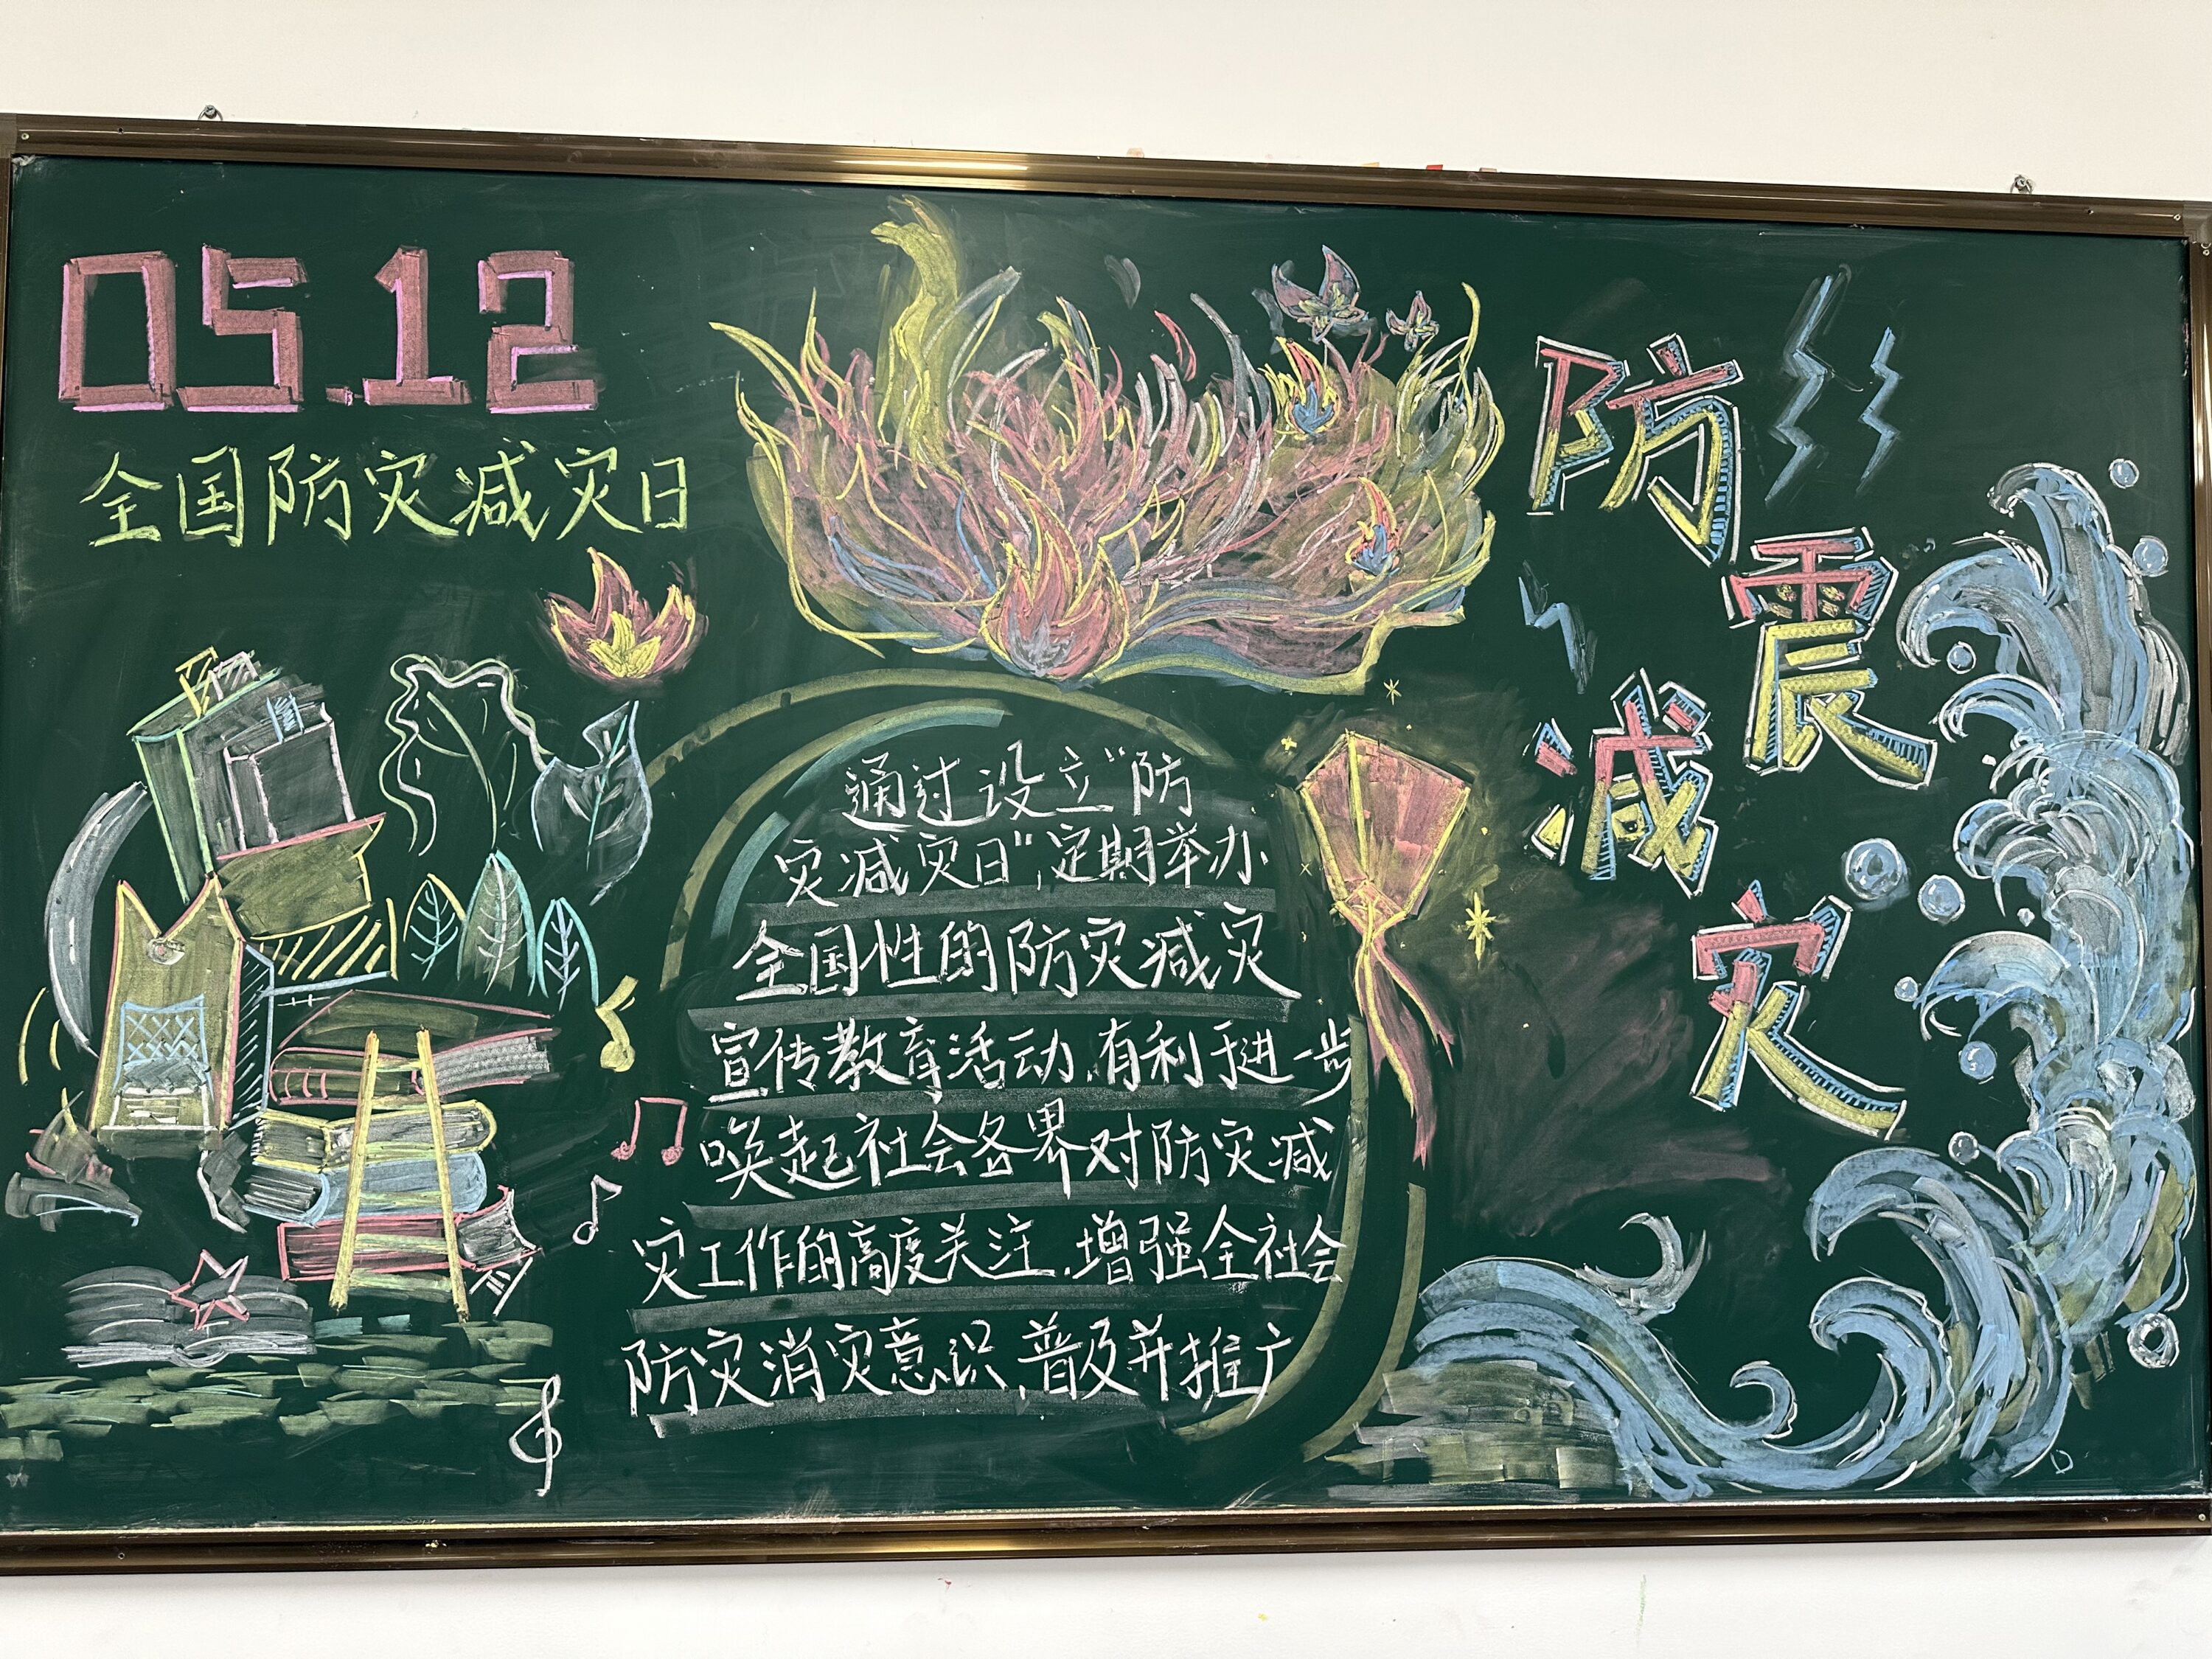 05.12
全国防灾减灾日
防震减灾
通过设立"防
灾减灾日",定期举办
全国性的防灾减灾
宣传教育活动,有利于进一步
唤起社会各界对防灾减
灾工作的高度关注,增强全社会
防灾消灾意识,普及并推广